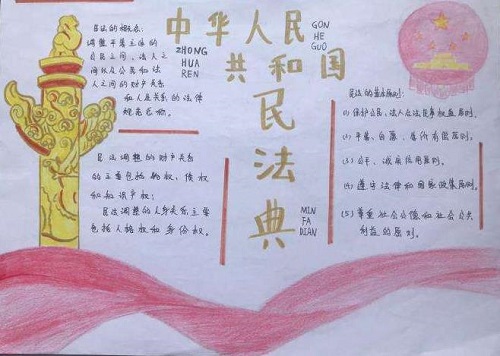 中华人民
ZHONG
HUA
REN
GON
HE
GUÓ
共和国
民法典
MIN
FA
DIAN
民法的概念:
调整平等主体的
自然人之间、法人之
间和公民和法
人之间的财产关系
和人身关系的法律
规范总称。
民法调整的财产关系
的主要包括物权、债权
和知识产权;
民法调整的人身关系主要
包括人格权和身份权。
民法的基本原则:
(1) 保护公民、法人合法民事权益原则.
(2) 平等、自愿、等价有偿原则.
(3) 公平、诚实信用原则.
(4) 遵守法律和国家政策原则.
(5) 尊重社会公德和社会公共
利益的原则.